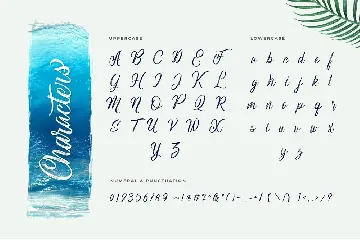 Characters
UPPERCASE
A B C D E F
G H I J K L
M N O P Q R
S T U V W X
Y Z
LOWERCASE
a b c d e f
g h i j k l
m n o p q r
s t u v w x
y z
NUMERAL & PUNCTUATION
0123456789